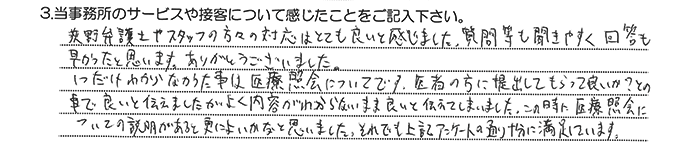 3.当事務所のサービスや接客について感じたことをご記入下さい。
萩野弁護士やスタッフの方々の対応はとても良いと感じました。質問等も聞きやすく回答も
早かったと思います。ありがとうございました。
1つだけわからなかった事は医療照会についてです。医者の方に提出してもらって良いか?との
事で良いと伝えましたがよく内容がわからないまま良いと伝えてしまいました。この時に医療照会に
ついての説明があると更によいかなと思いました。それでも上記アンケートの通り十分に満足しています。